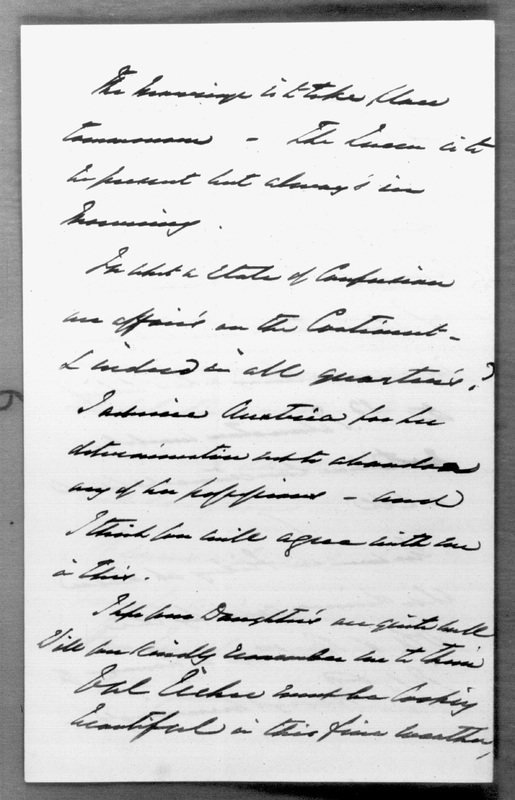 The Marriage is to take place
tomorrow - The Queen is to
be present but always in
Mourning.
In what a State of Confusion
are affairs on the Continent -
& indeed in all quarters?
I admire Austria for her
determination not to abandon
any of her possessions - and
I think you will agree with me
in this.
I hope your Daughters are quite well
Will you kindly remember me to them
must be looking
beautiful in this fine weather,